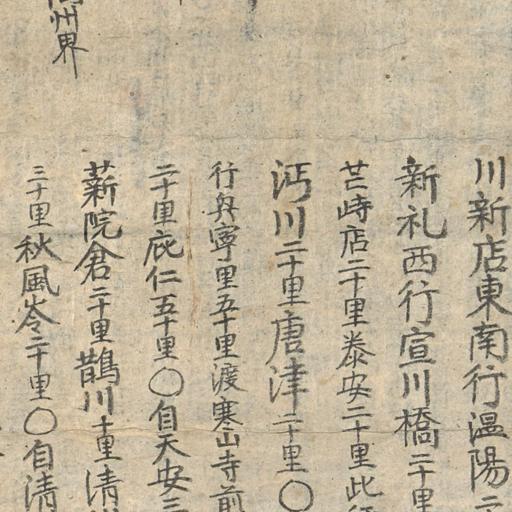 川新店東南行溫陽二
新礼西行宣川橋二十里
芒峙店二十里泰安二十里此
沔川二十里唐津二十里〇
行興寧里五十里渡寒山寺前
二十里庇仁五十里〇自天安三
薪院倉二十里鵲川十里清
三十里秋風岺二十里〇自清
州界